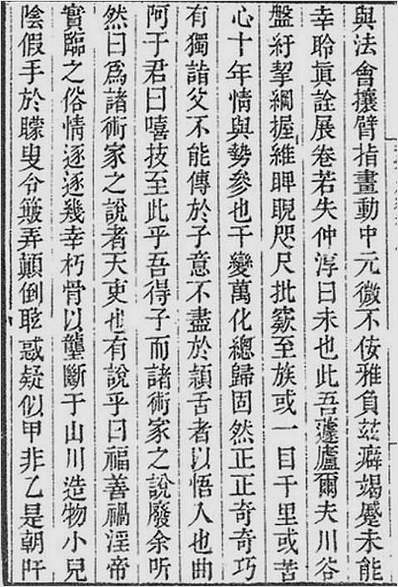 與法會攘臂指畫動中元微不佞雅負茲癖竭蹷未能
幸聆眞詮展卷若失仲淳曰未也此吾蘧廬爾夫川谷
盤紆挈綱握維睥睨咫尺批窾至族或一目千里或苦
心十年情與勢參也千變萬化總歸固然正正奇奇巧
有獨詣父不能傳於子意不盡於頴舌者以悟人也曲
阿于君曰嘻技至此乎吾得子而諸術家之說廢余听
然曰爲諸術家之說者天吏也有說乎曰福善禍淫帝
實臨之俗情逐逐幾幸朽骨以壟斷于山川造物小兒
陰假手於矇叟令簸弄顛倒眩惑疑似甲非乙是朝阡